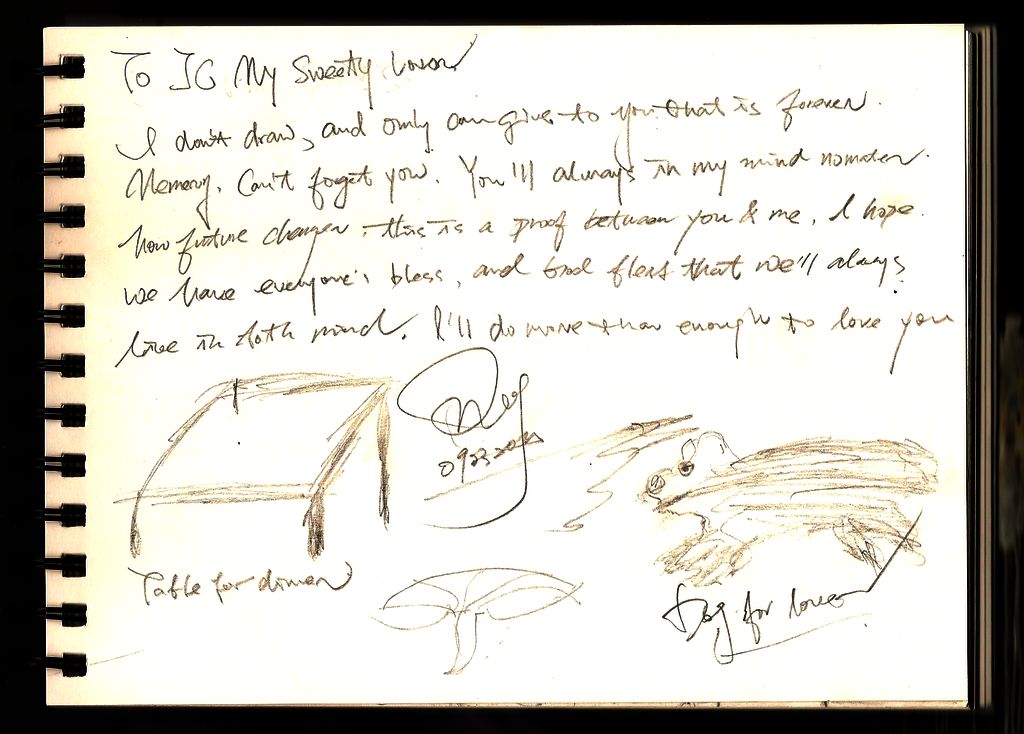 To JC My Sweetly Lover
I don't draw, and only can give to you that is forever
Memory. Can't forget you. You'll always in my mind nomater
how future changer, this is a proof between you & me. I hope
we have everyone's bless, and that we'll always
live in both mind. I'll do more than enough to love you
0923
Table for dinner
Dog for lover